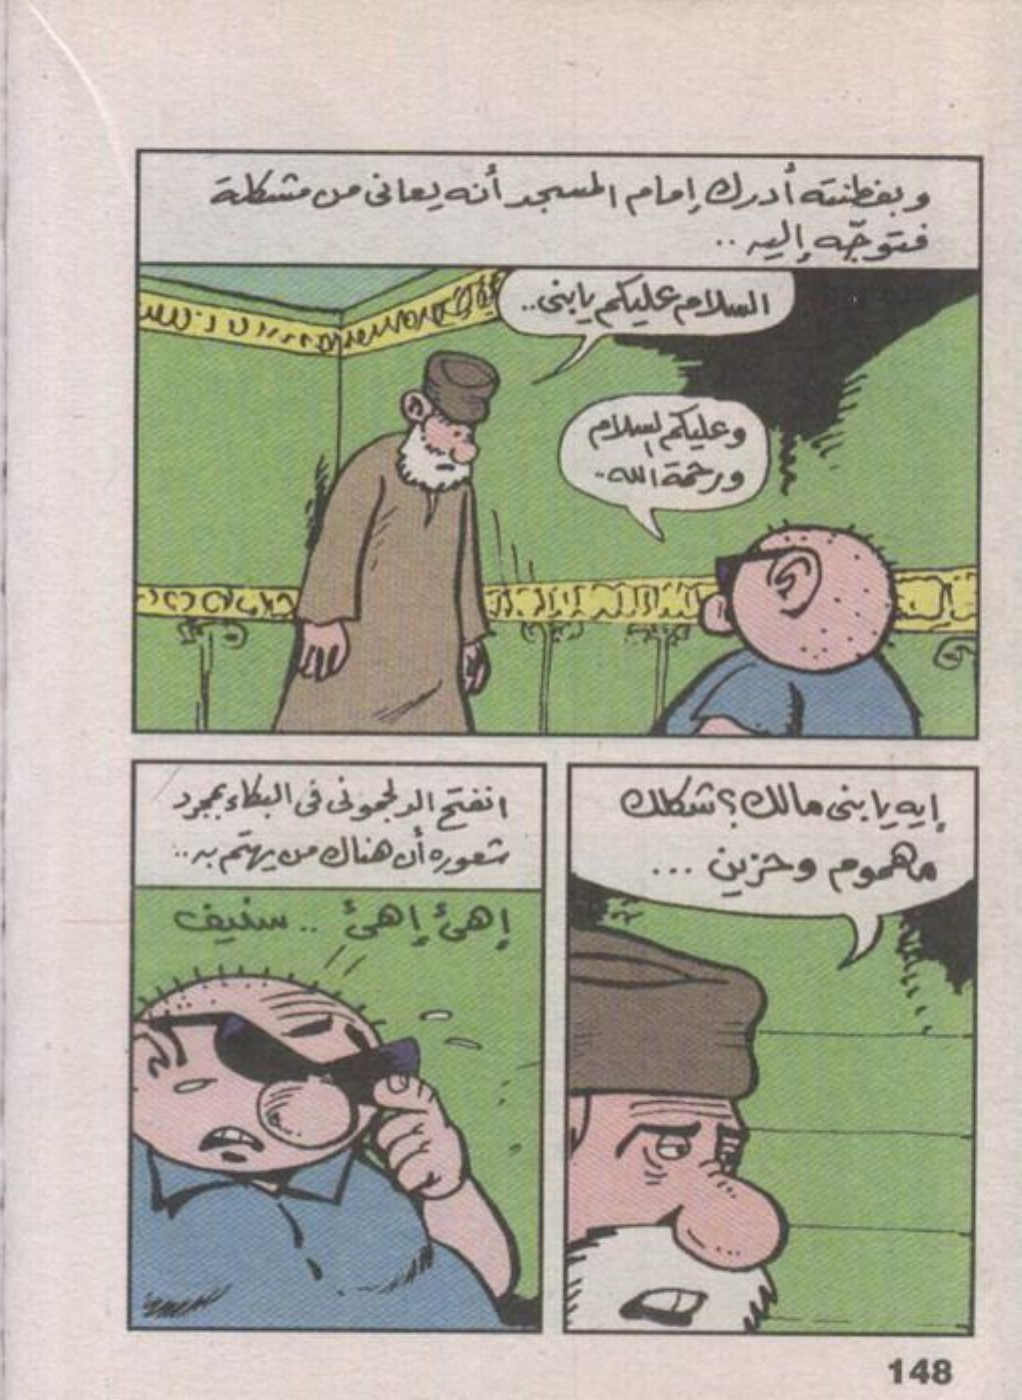 وبفطنته أدرك إمام المسجد أنه يعانى من مشكلة
فتوجّه إليه ..
السلام عليكم يابنى..
وعليكم السلام
ورحمة الله.
إيه يا بنى مالك؟ شكلك
مهموم وحزين ...
انفتح الدلجمونى فى البكاء بمجرد
شعوره أن هناك من يهتم به ..
إهئ إهئ .. سنيف
148